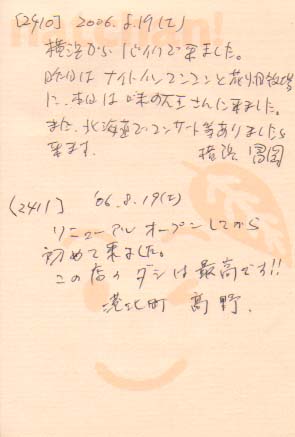 [2410] 2006.8.19(土)
横浜からバイクで来ました。
昨日はナイトインマンコンと花畑牧場
に、本日は味の大王さんに来ました。
また、北海道でコンサート等ありましたら
来ます。 横浜 冨岡
[2411] '06.8.19(土)
リニューアルオープンしてから
初めて来ました。
この店のダシは最高です!!
港北町 高野.